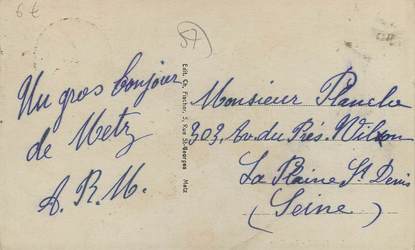 6€
57
Un gros bonjour
de Metz
A. R. M.
Edit. Ch. Fischer, 5, Rue St-Georges, Metz
Monsieur Planche
303, Av. du Prés. Wilson
La Plaine St Denis
(Seine)